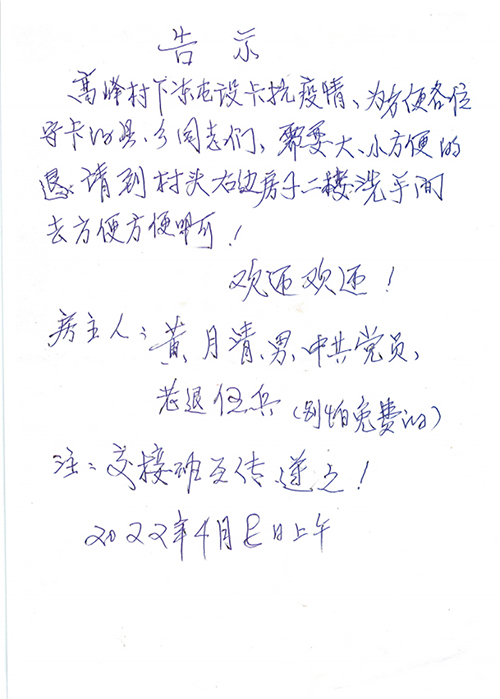 告示
高峰村下冻屯设卡抗疫情、为方便各位
守卡的县、乡同志们、那要大、小方便的
请到村头右边房子二楼洗手间
去方便方便啊!
欢迎欢迎!
房主人:黄月清、男、中共党员、
老退伍兵(别怕免费的)
注:交接班互传递之!
2022年4月 日上午